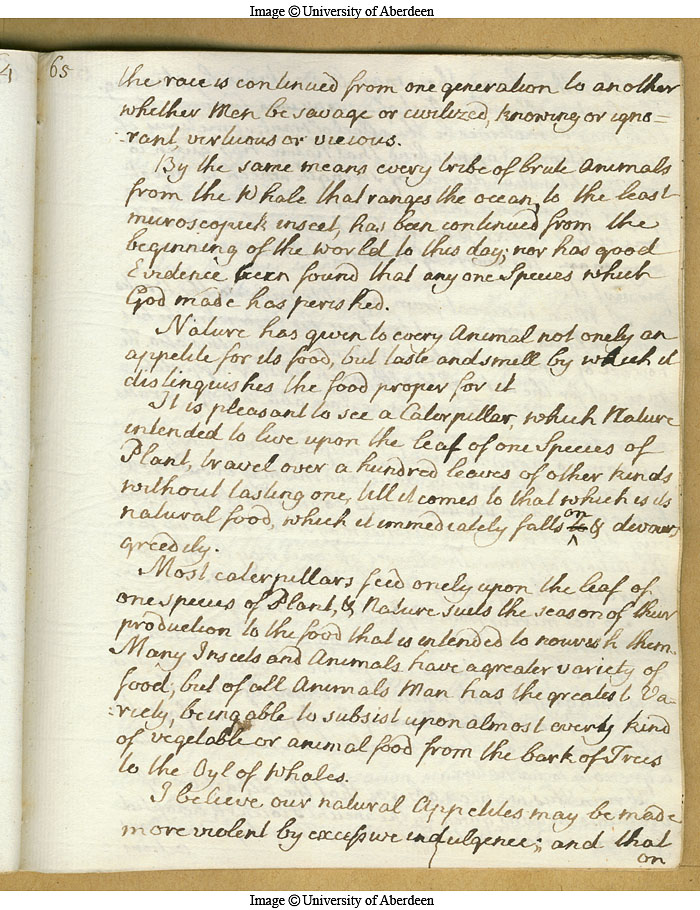 Image © University of Aberdeen
65
the race is continued from one generation to another
whether Men be savage or civilized, knowing or igno=
:rant, virtuous or vicious.
By the same means every tribe of brute Animals
from the Whale that ranges the ocean, to the least
microscopick insect, has been continued from the
beginning of the world to this day; nor has good
Evidence been found that any one Species which
God made has perished.
Nature has given to every Animal not onely an
appetite for its food, but taste and smell by which it
distinguishes the food proper for it
It is pleasant to see a Caterpillar, which Nature
intended to live upon the leaf of one Species of
Plant, travel over a hundred leaves of other kinds
without tasting one, till it comes to that which is its
natural food, which it immediately falls on & devours
greedily.
Most caterpillars feed onely upon the leaf of
one species of Plant, & Nature suits the season of their
production to the food that is intended to nourish them.
Many Insects and Animals have a greater variety of
food, but of all Animals Man has the greatest Va-
:riety, being able to subsist upon almost every kind
of vegetable or animal food from the bark of Trees
to the Oyl of Whales.
I believe our natural Appetites may be made
more violent by excessive indulgence; and that
on
Image © University of Aberdeen